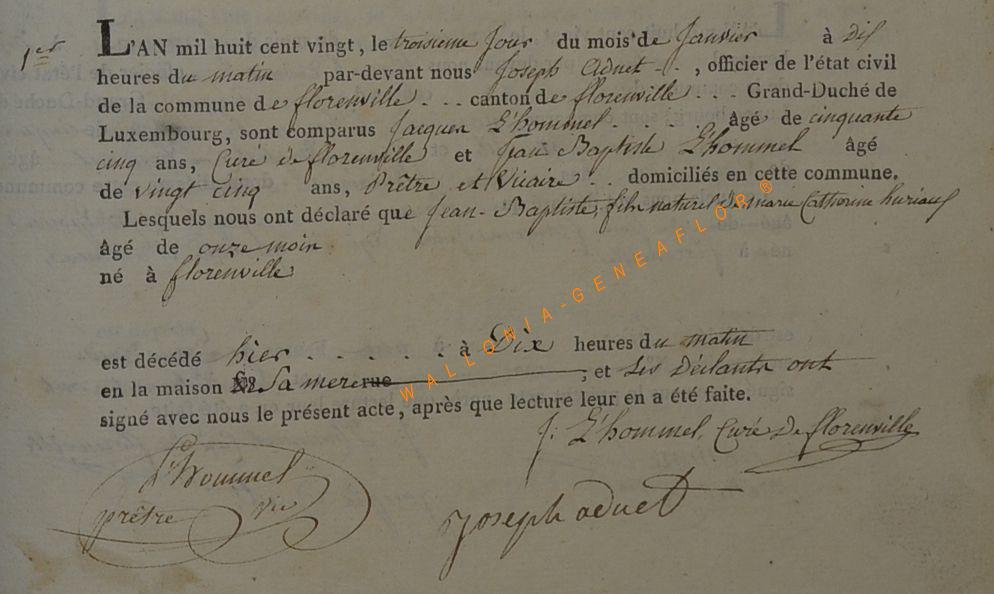 1er
L'AN mil huit cent vingt, le troisieme Jour du mois de Janvier à dix
heures du matin par-devant nous Joseph Adnet - - , officier de l'état civil
de la commune de florenville . . . canton de florenville . . . Grand-Duché de
Luxembourg, sont comparus Jacques L'hommel . . . . . . âgé de cinquante
cinq ans, Curé de florenville et Jean Baptiste L'hommel âgé
de vingt cinq ans, Prêtre et Vicaire . . domiciliés en cette commune.
Lesquels nous ont déclaré que Jean-Baptiste, fils naturel de marie Catherine
âgé de onze mois
né à florenville
est décédé hier . . . . . . à Dix heures du matin
en la maison N.° Sa mere rue ; et Les Déclants ont
signé avec nous le présent acte, après que lecture leur en a été faite.
J: L'hommel, Curé De florenville
L'hommel
prêtre vic
Joseph adnet
WALLONIA-GENEAFLOR®